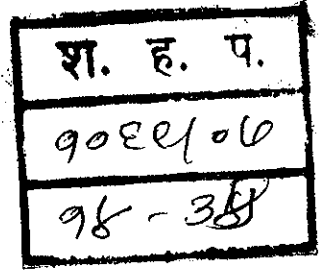 श. ह. प.
१०६५/०७
१४ -